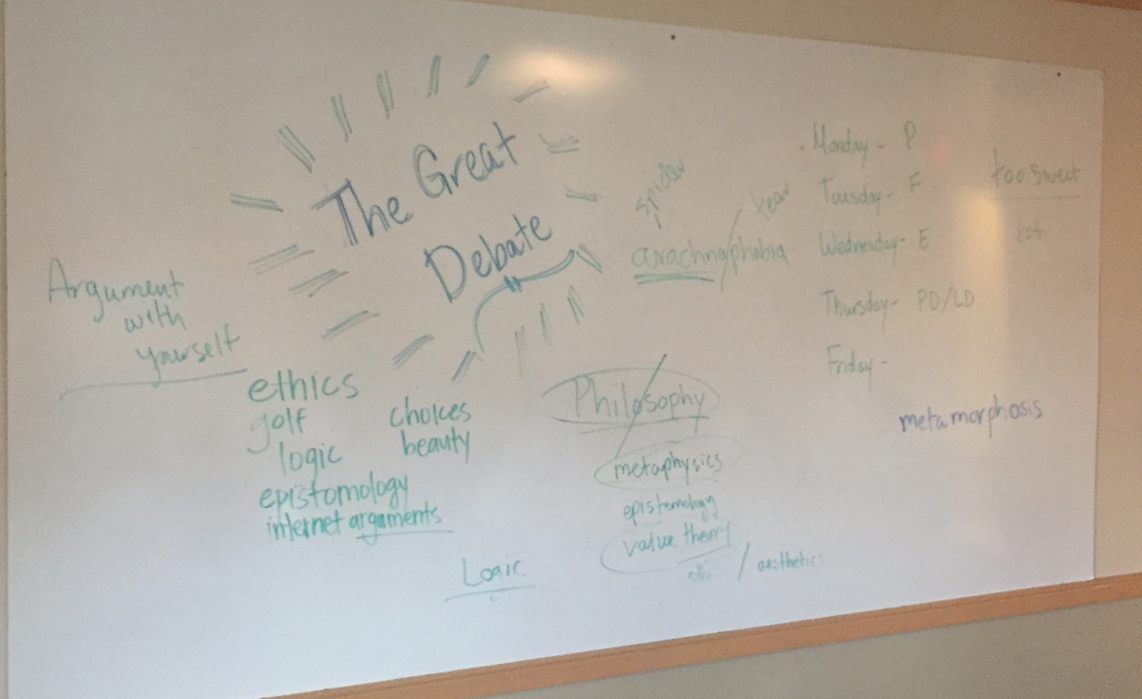 The Great
Debate
Argument
with
yourself
ethics
golf
logic
epistomology
internet arguments
choices
beauty
Logic
spider
fear
arachna/phobia
Philosophy
metaphysics
epistemology
value theory
/ aesthetics
Monday - P
Tuesday - F
Wednesday - E
Thursday - PD/LD
Friday -
too sweet
metamorphosis